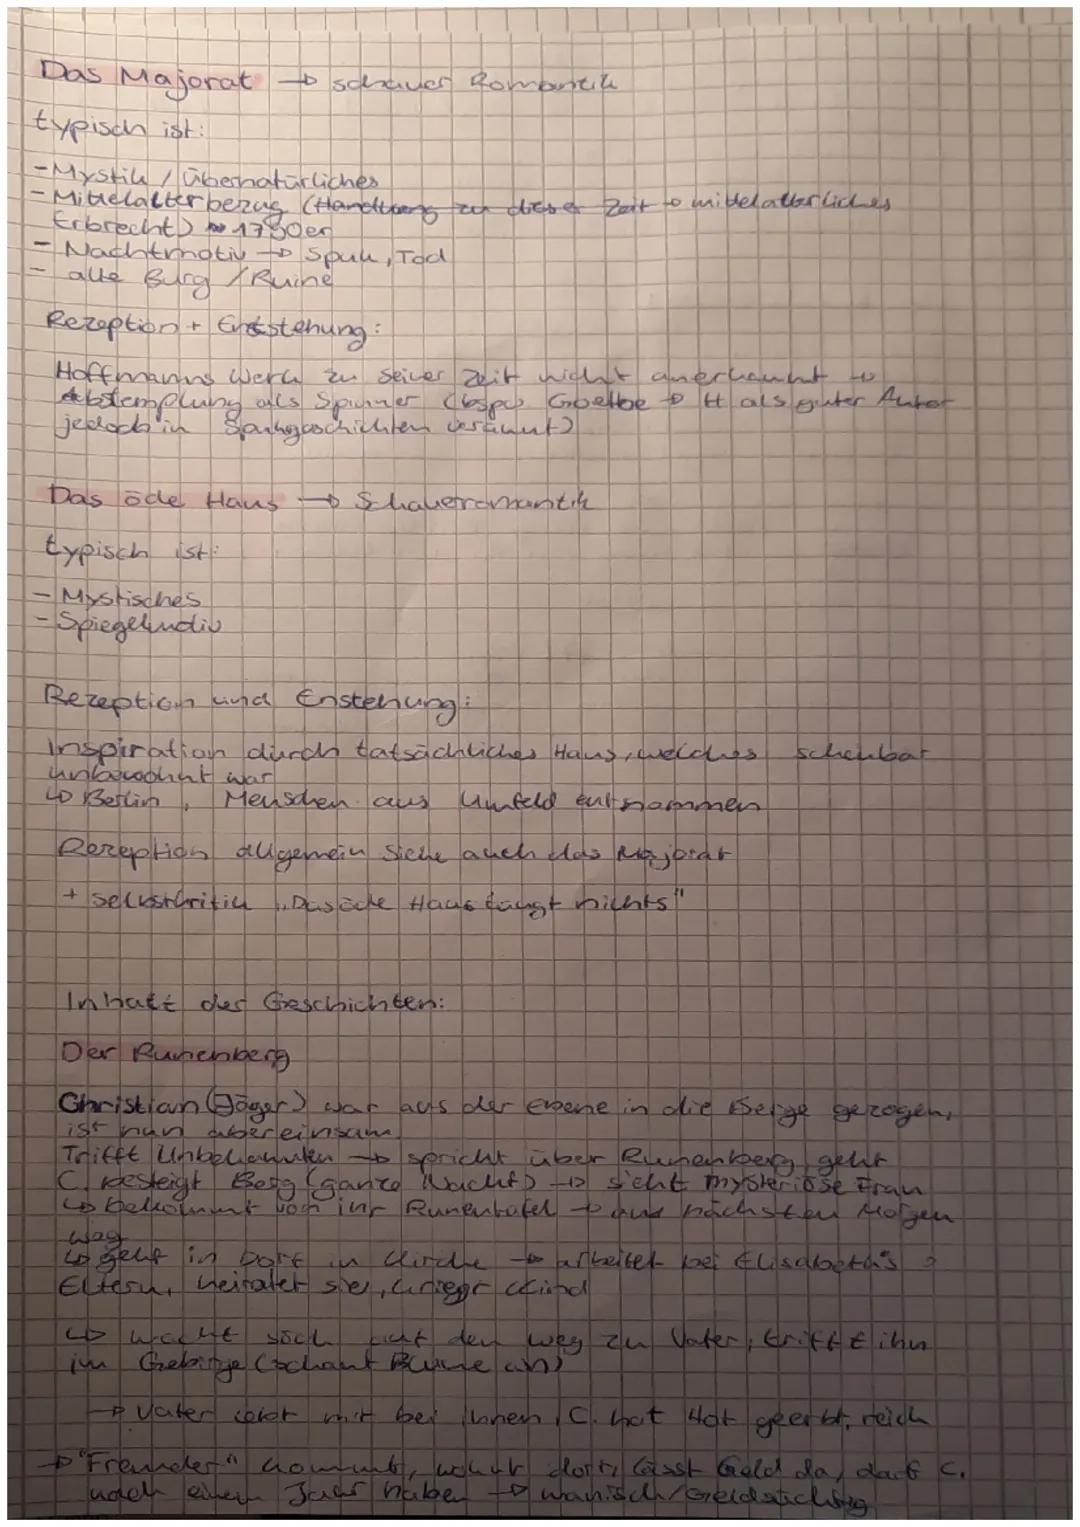 Das Majorat → schauer Romantik
typisch ist:
- Mystik / Übernatürliches
- Mittelalterbezug (Handlung zu dieser Zeit → mittelalterliches
Erbrecht) 1790er
- Nachtmotiv → Spuk, Tod
- alte Burg / Ruine
Rezeption + Entstehung:
Hoffmanns Werk zu seiner Zeit nicht anerkannt →
Abstemplung als Spinner (bspw Goethe → H als guter Autor
jedoch in Spukgeschichten verannt)
Das öde Haus → Schauerromantik
typisch ist:
- Mystisches
- Spiegelmotiv
Rezeption und Enstehung:
Inspiration durch tatsächliches Haus, welches scheinbar
unbewohnt war
↳ Berlin, Menschen aus Umfeld entnommen
Rezeption allgemein siehe auch das Majorat
+ selbstkritik „Das öde Haus taugt nichts"
Inhalt der Geschichten:
Der Runenberg
Christian (Jäger) war aus der Ebene in die Berge gezogen,
ist nun aber einsam
Trifft Unbekannten → spricht über Runenberg, geht
C. besteigt Berg (ganze Nacht) → sieht mysteriöse Frau
↳ bekommt von ihr Runentafel → am nächsten Morgen
weg
↳ geht in Dorf in Kirche → arbeitet bei Elisabeths
Eltern, heiratet sie, kriegt Kind
↳ macht sich auf den weg zu Vater, trifft ihn
im Gebirge (schaut Blume an)
→ Vater lebt mit bei ihnen, C. hat Hof geerbt, reich
→ "Fremder" kommt, wohnt dort, lässt Geld da, darf C.
nach einem Jahr haben → wahnisch/Geldsüchtig